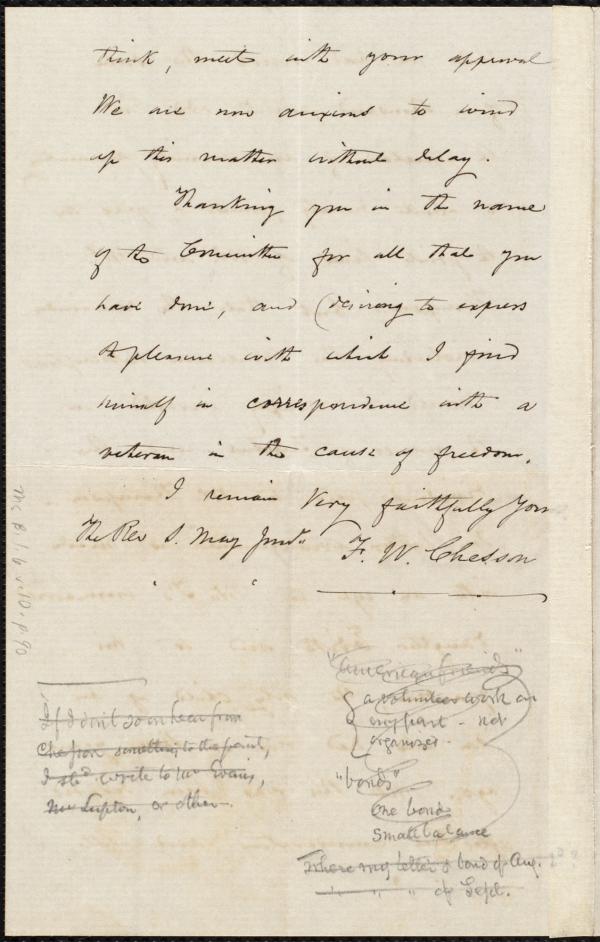 think, meet with your approval
We are now anxious to wind
up this matter without delay.
Thanking you in the name
of the Committee for all that you
have done, and (desiring to express
the pleasure with which I find
myself in correspondence with a
veteran in the cause of freedom,
I remain Very faithfully Yours
The Rev S. May Junr. F. W. Chesson
Ms. B. 1. 6 v. 10. p. 90
"American friends"
a volunteer work on
my part - not
organized.
"bonds"
One bond
Small balance
where my letter & bond of Aug. 2d?
" " " of Sept.
If I don't soon hear from
Chesson something to the point,
I shd. write to Mr Evans,
Mr Lupton, or other.